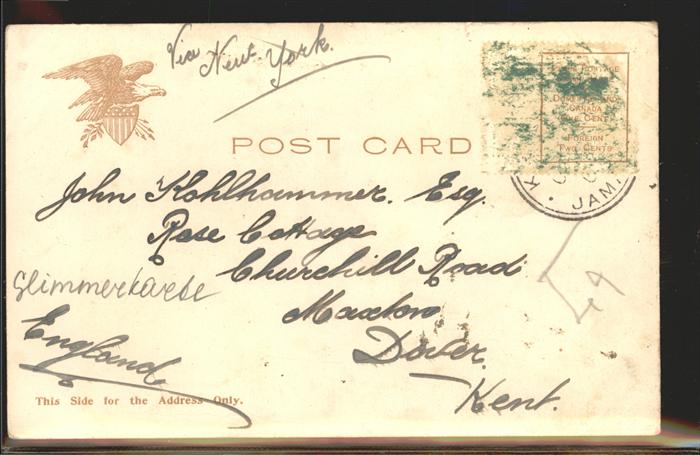 Via
New-York.
POST CARD
DOMESTIC AND
CANADA
ONE CENT
FOREIGN
TWO CENTS
JAM
John Kohlhammer. Esq.
Rose Cottage
Churchill Road
Glimmerkarte
Maxton
England
Dover.
Kent.
This Side for the Address Only.